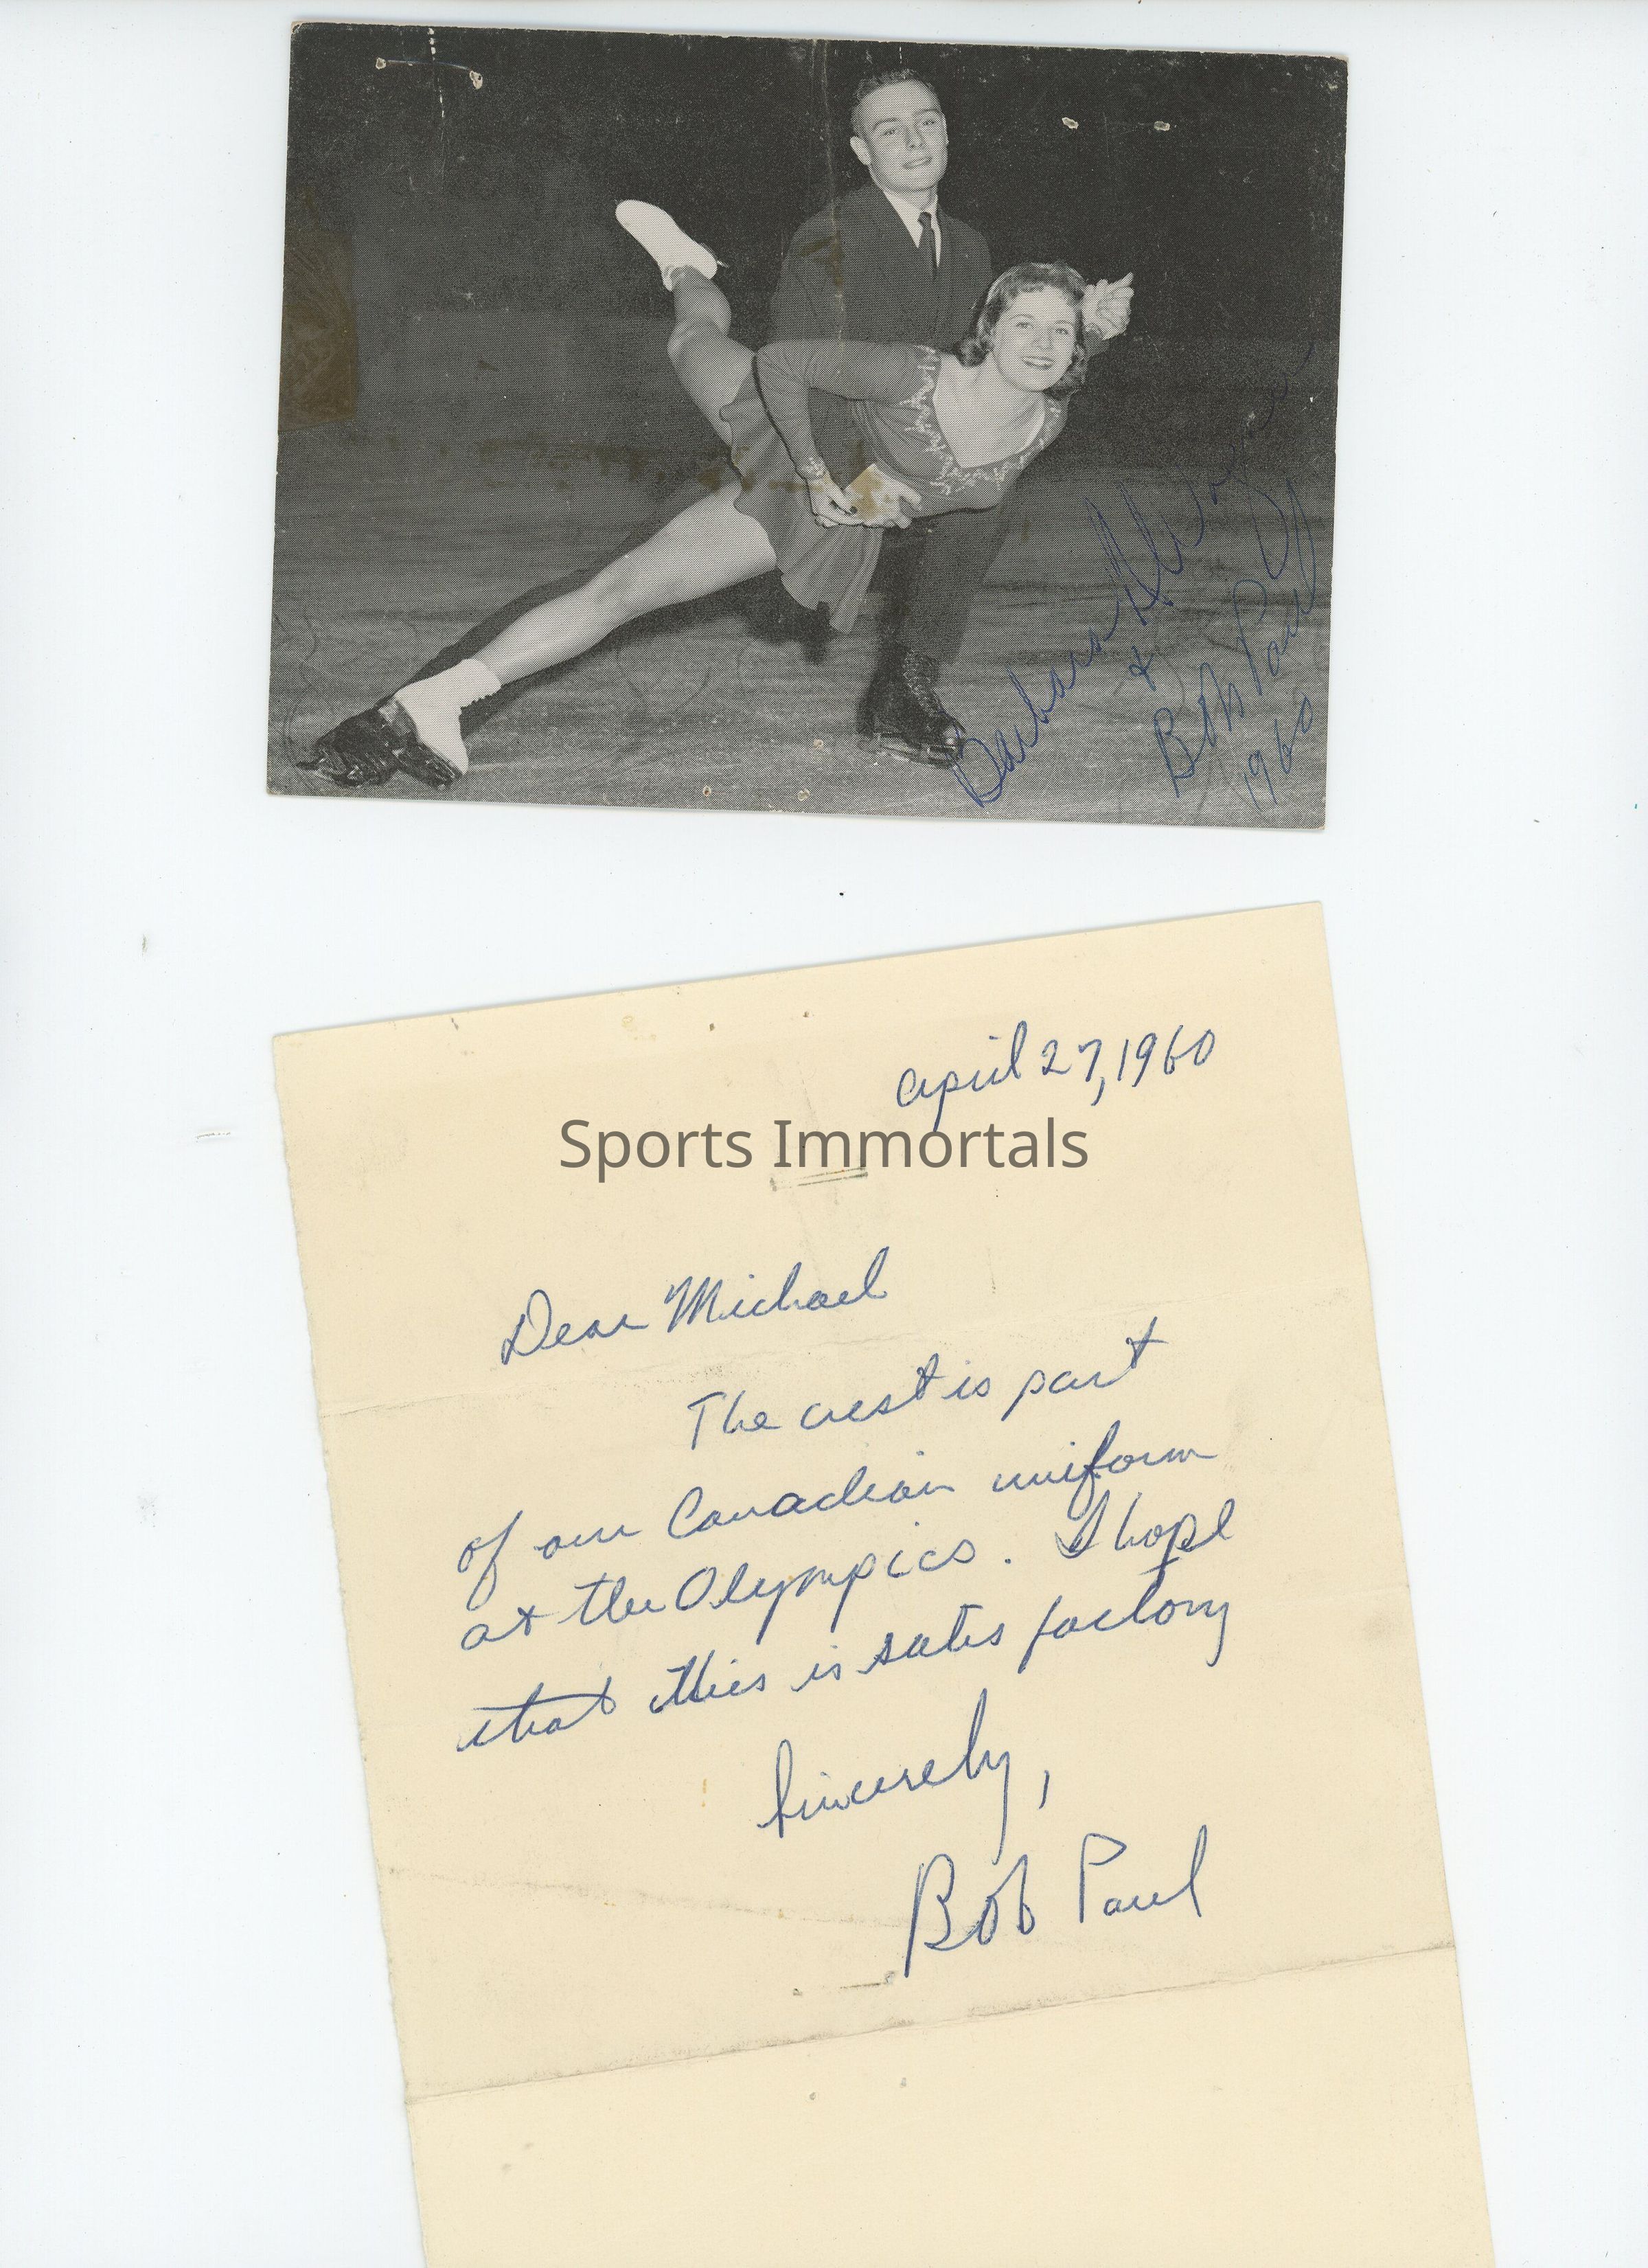 Barbara Wagner
&
Bob Paul
1960
April 27, 1960
Sports Immortals
Dear Michael
The crest is part
of our Canadian uniform
at the Olympics. I hope
that this is satisfactory
Sincerely,
Bob Paul